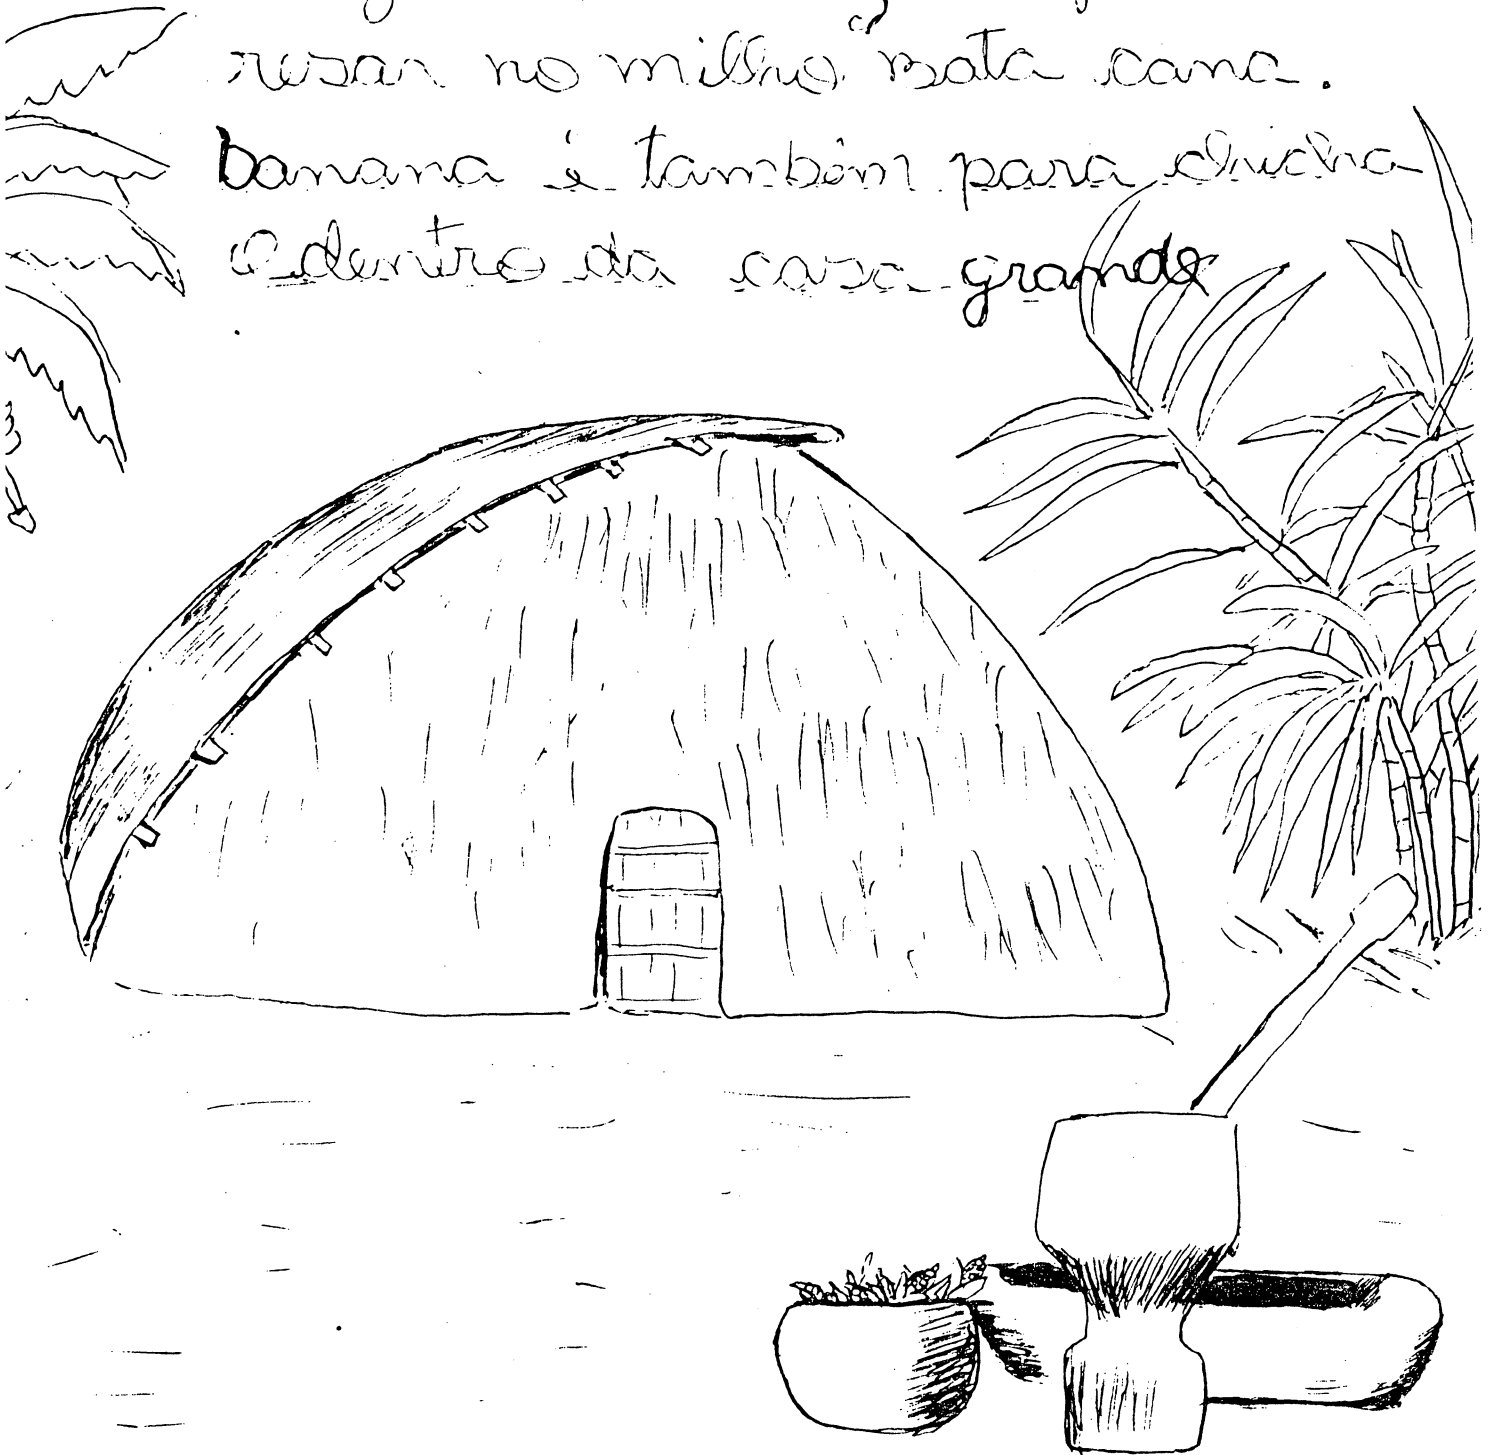 resar no milho bata cana.
banana é também para chicha
e dentro da casa grande